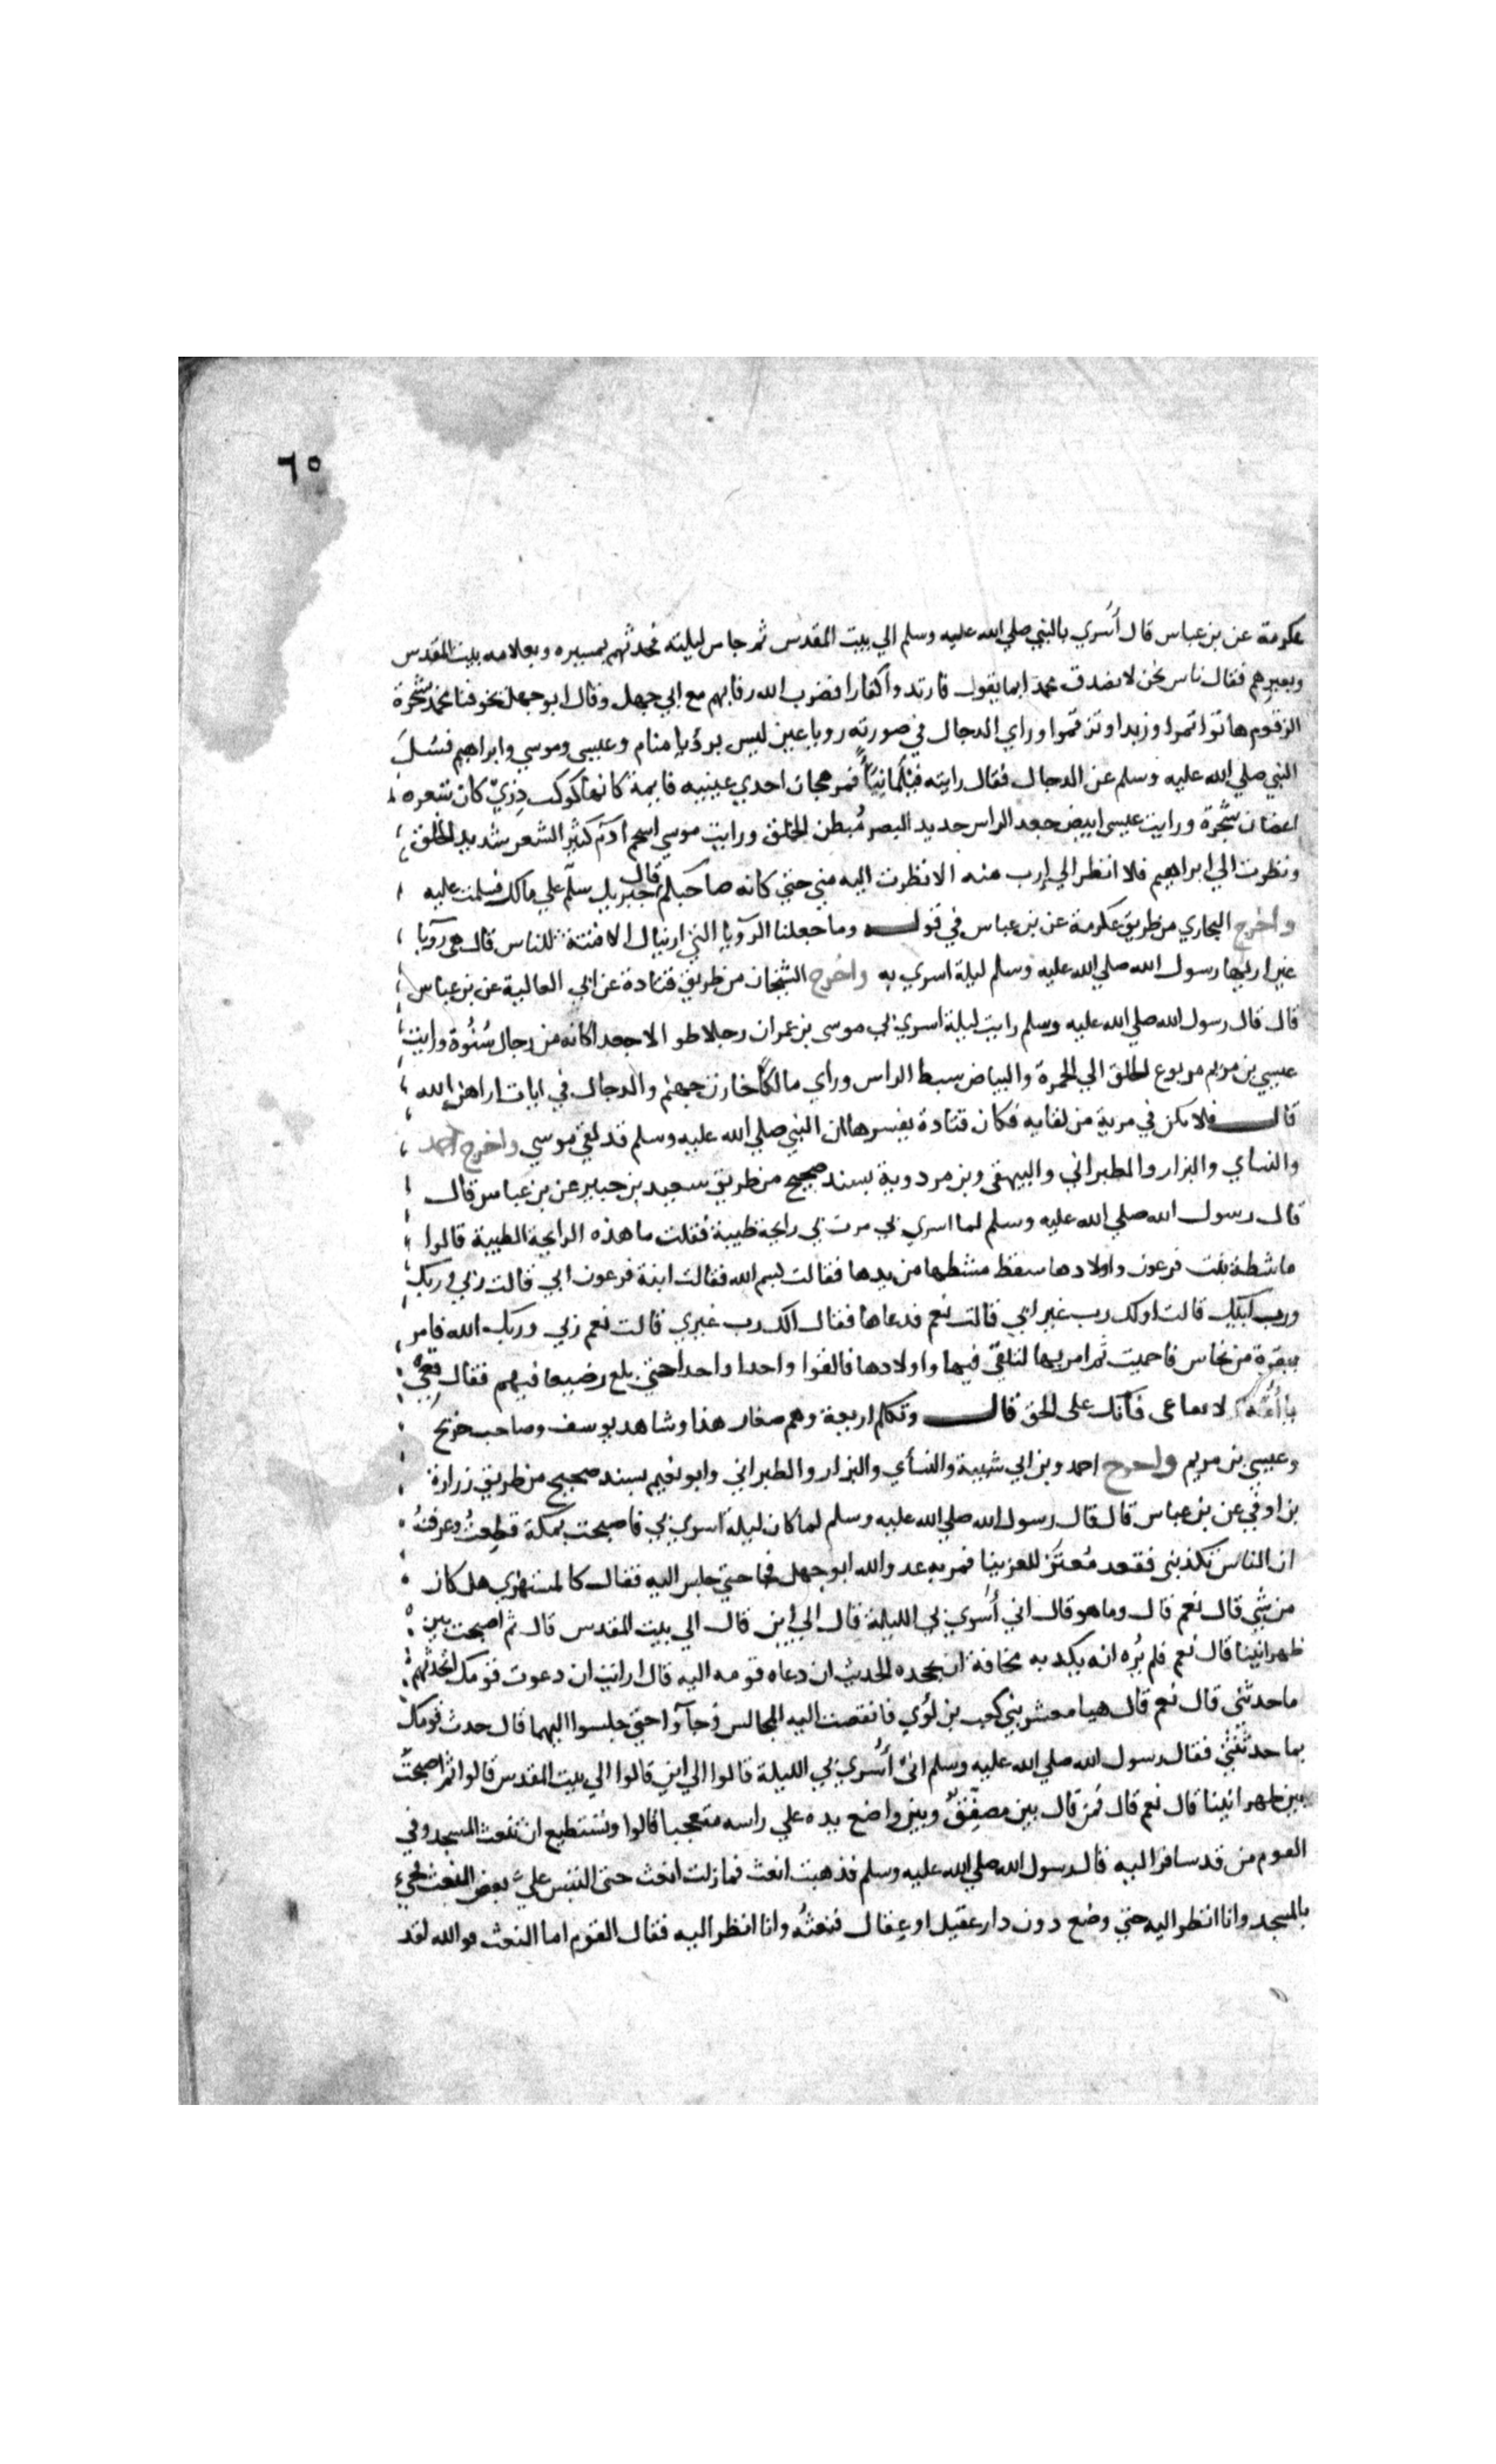 ٦٥
عكرمة عن بن عباس قال أسري بالنبي صلي الله عليه وسلم الي بيت المقدس ثم جا من ليلته فحدثهم بمسيره وبعلامه بيت المقدس
وبعيرهم فقال ناس نحن لا نصدق محمدا بما يقول فارتدوا كفارا فضرب الله رقابهم مع ابي جهل وقال ابو جهل يخوفنا محمد بشجرة
الزقوم هاتوا تمرا وزبدا وتزقموا وراي الدجال في صورته رويا عين ليس برؤيا منام وعيسي وموسي وابراهيم فسُئل
النبي صلي الله عليه وسلم عن الدجال فقال رايته فيلمانيا اقمر هجان احدي عينيه قايمة كانها كوكب دري كان شعره
اغصان شجرة ورايت عيسي ابيض جعد الراس حديد البصر مُبطن الخلق ورايت موسي اسحم ادم كثير الشعر شديد الخلق
ونظرت الي ابراهيم فلا انظر الي إرب منه الا نظرت اليه مني حتي كانه صاحبكم قال جبريل سلّم علي مالك فسلمت عليه
واخرج البخاري من طريق عكرمة عن بن عباس في قوله وما جعلنا الرويا التي اريناك الا فتنة للناس قال هي رويا
عين اريها رسول الله صلي الله عليه وسلم ليلة اسري به واخرج الشيخان من طريق قتادة عن ابي العالية عن بن عباس
قال قال رسول الله صلي الله عليه وسلم رايت ليلة اسري بي موسي بن عمران رجلا طوالا جعدا كانه من رجال شنُوة ورايت
عيسي بن مريم مربوع الخلق الي الحمرة والبياض سبط الراس وراي مالكًا خازن جهنم والدجال في ايات اراهن الله
قال فلا تكن في مرية من لقايه فكان قتادة يفسرها ان النبي صلي الله عليه وسلم قد لقي موسي واخرج احمد
والنسأي والبزار والطبراني والبيهقي وبن مردوية بسند صحيح من طريق سعيد بن جبير عن بن عباس قال
قال رسول الله صلي الله عليه وسلم لما اسري بي مرت بي رايحة طيبة فقلت ما هذه الرايحة الطيبة قالوا
ماشطة بنت فرعون واولادها سقط مشطها من يدها فقالت بسم الله فقالت ابنة فرعون ابي قالت ربي وربك
ورب ابيك قالت اولك رب غير ابي قالت نعم فدعاها فقال الك رب غيري قالت نعم ربي وربك الله فامر
ببقرة من نحاس فاحميت ثم امر بها لتلقي فيها واولادها فالقوا واحدا واحدا حتي بلغ رضيعا فيهم فقال قعي
يا أُمَّه لا تقاعي فانك علي الحق قال وتكلم اربعة وهم صغار هذا وشاهد يوسف وصاحب جريج
وعيسي بن مريم واخرج احمد وبن ابي شيبة والنسأي والبزار والطبراني وابو نعيم بسند صحيح من طريق زرارة
بن اوفي عن بن عباس قال قال رسول الله صلي الله عليه وسلم لما كان ليلة اسري بي فاصبحت بمكة قطعتُ وعرفتُ
ان الناس تكذبني فقعد مُعتزلا حزينا فمر به عدو الله ابو جهل فجا حتي جلس اليه فقال كالمستهزي هل كان
من شي قال نعم قال وما هو قال اني أُسري بي الليلة قال الي اين قال الي بيت المقدس قال ثم اصبحت بين
ظهرانينا قال نعم فلم يُره انه يكذبه مخافة ان يجحده الحديث ان دعاه قومه اليه قال ارايت ان دعوت قومك اتحدثهم
ما حدثتني قال نعم قال هيا معشر بني كعب بن لُوي فانفضت اليه المجالس وجآوا حتي جلسوا اليهما قال حدث قومك
بما حدثتني فقال رسول الله صلي الله عليه وسلم اني أُسري بي الليلة قالوا الي اين قالوا الي بيت المقدس قالوا ثم اصبحت
بين ظهرانينا قال نعم قال فمن قال بين مصفِّق وبين واضع يده علي راسه متعجبا قالوا وتستطيع ان تنعت المسجد وفي
القوم من قد سافر اليه قال رسول الله صلي الله عليه وسلم فذهبت انعت فما زلت انعت حتي التبس عليّ بعض النعت فجيء
بالمسجد وانا انظر اليه حتي وضع دون دار عقيل او عقال فنعتُه وانا انظر اليه فقال القوم اما النعت فوالله لقد